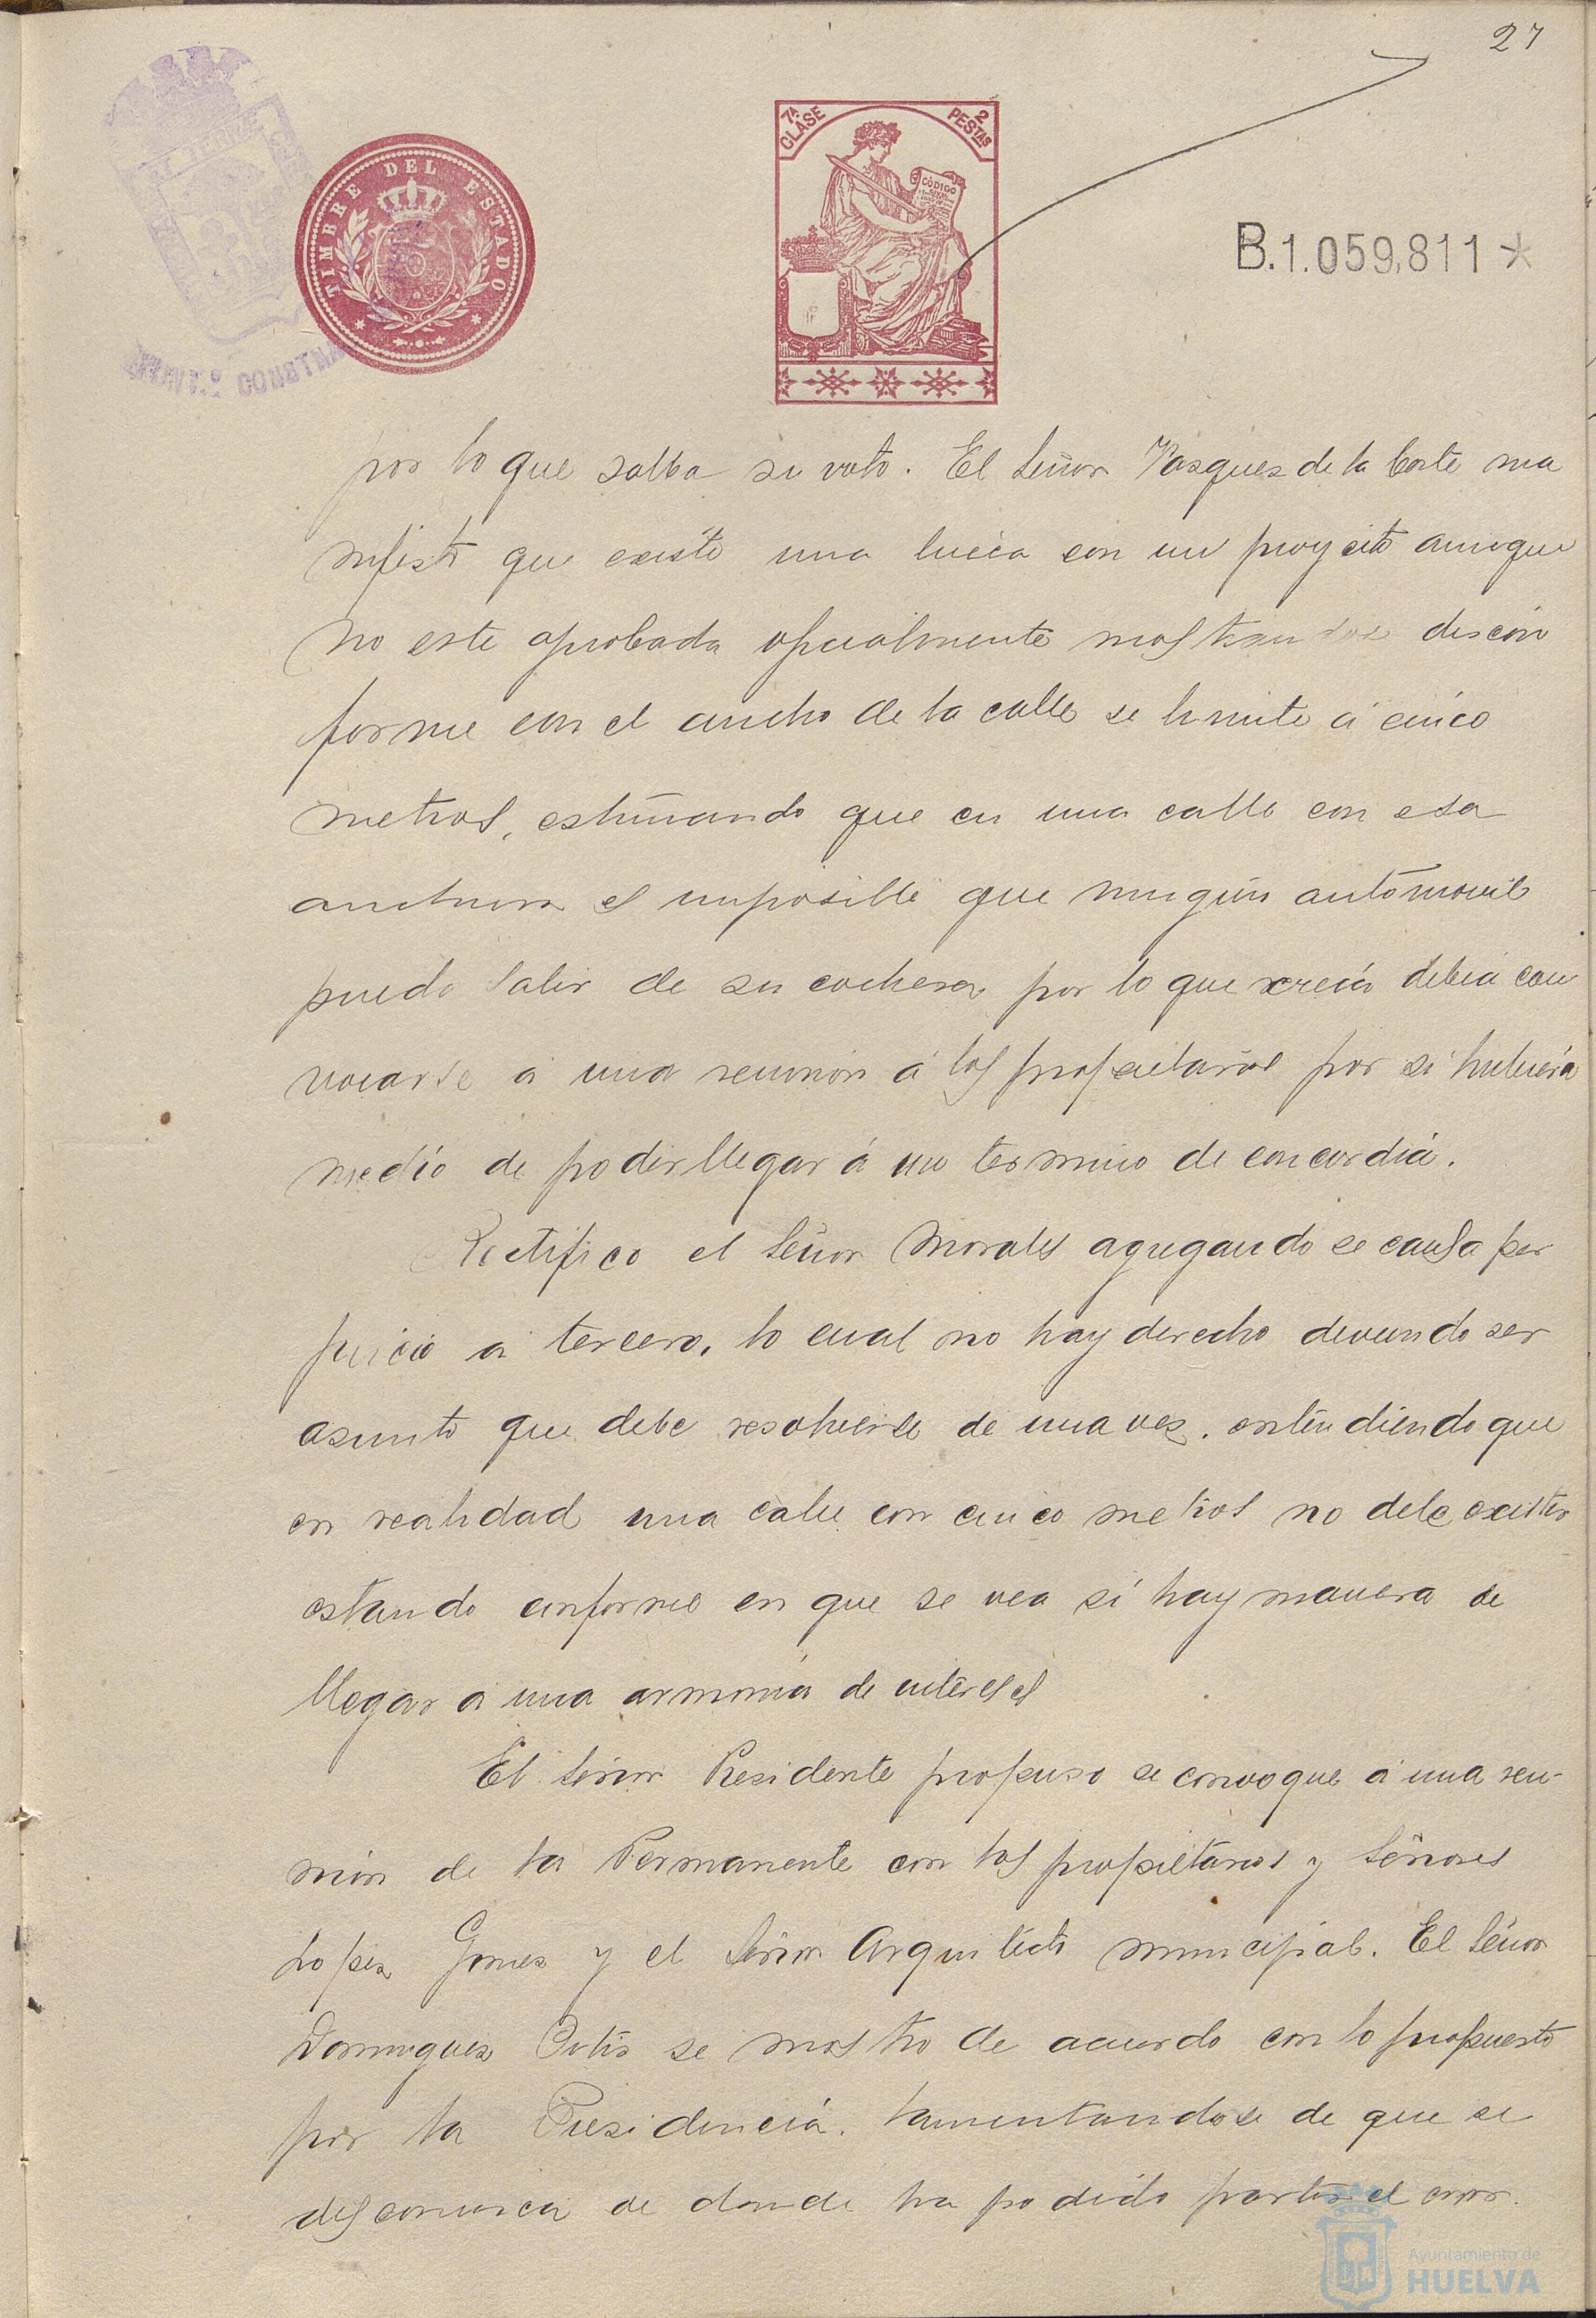 27
TIMBRE DEL ESTADO
7ª CLASE
2 PESTAS
CÓDIGO CIVIL
B.1.059,811*
por lo que salba su voto. El Señor Vasquez de la Corte ma
nifestó que existe una linea con un proyecto aunque
no este aprobada oficialmente mostrandose discon
forme con el ancho de la calle se limite á cinco
metros, estimando que en una calle con esa
anchura es imposible que ningún automovil
pueda salir de su cochera por lo que creia debia con
vocarse a una reunion á los propietarios por si hubiera
medio de poder llegar á un termino de concordia.
Rectifico el Señor Morales agregando se causa per
juicio a tercero, lo cual no hay derecho deviendo ser
asunto que debe resolverse de una vez, entendiendo que
en realidad una calle con cinco metros no debe existir
estando conforme en que se vea si hay manera de
llegar a una armonia de intereses
El Señor Presidente propuso se convoque a una reu-
nion de la Permanente con los propietarios y Señores
Lopez Gomez y el Señor Arquitecto municipal. El Señor
Dominguez Ortiz se mostro de acuerdo con lo propuesto
por la Presidencia, lamentandose de que se
desconozca de donde ha podido partir el error.
Ayuntamiento de
HUELVA